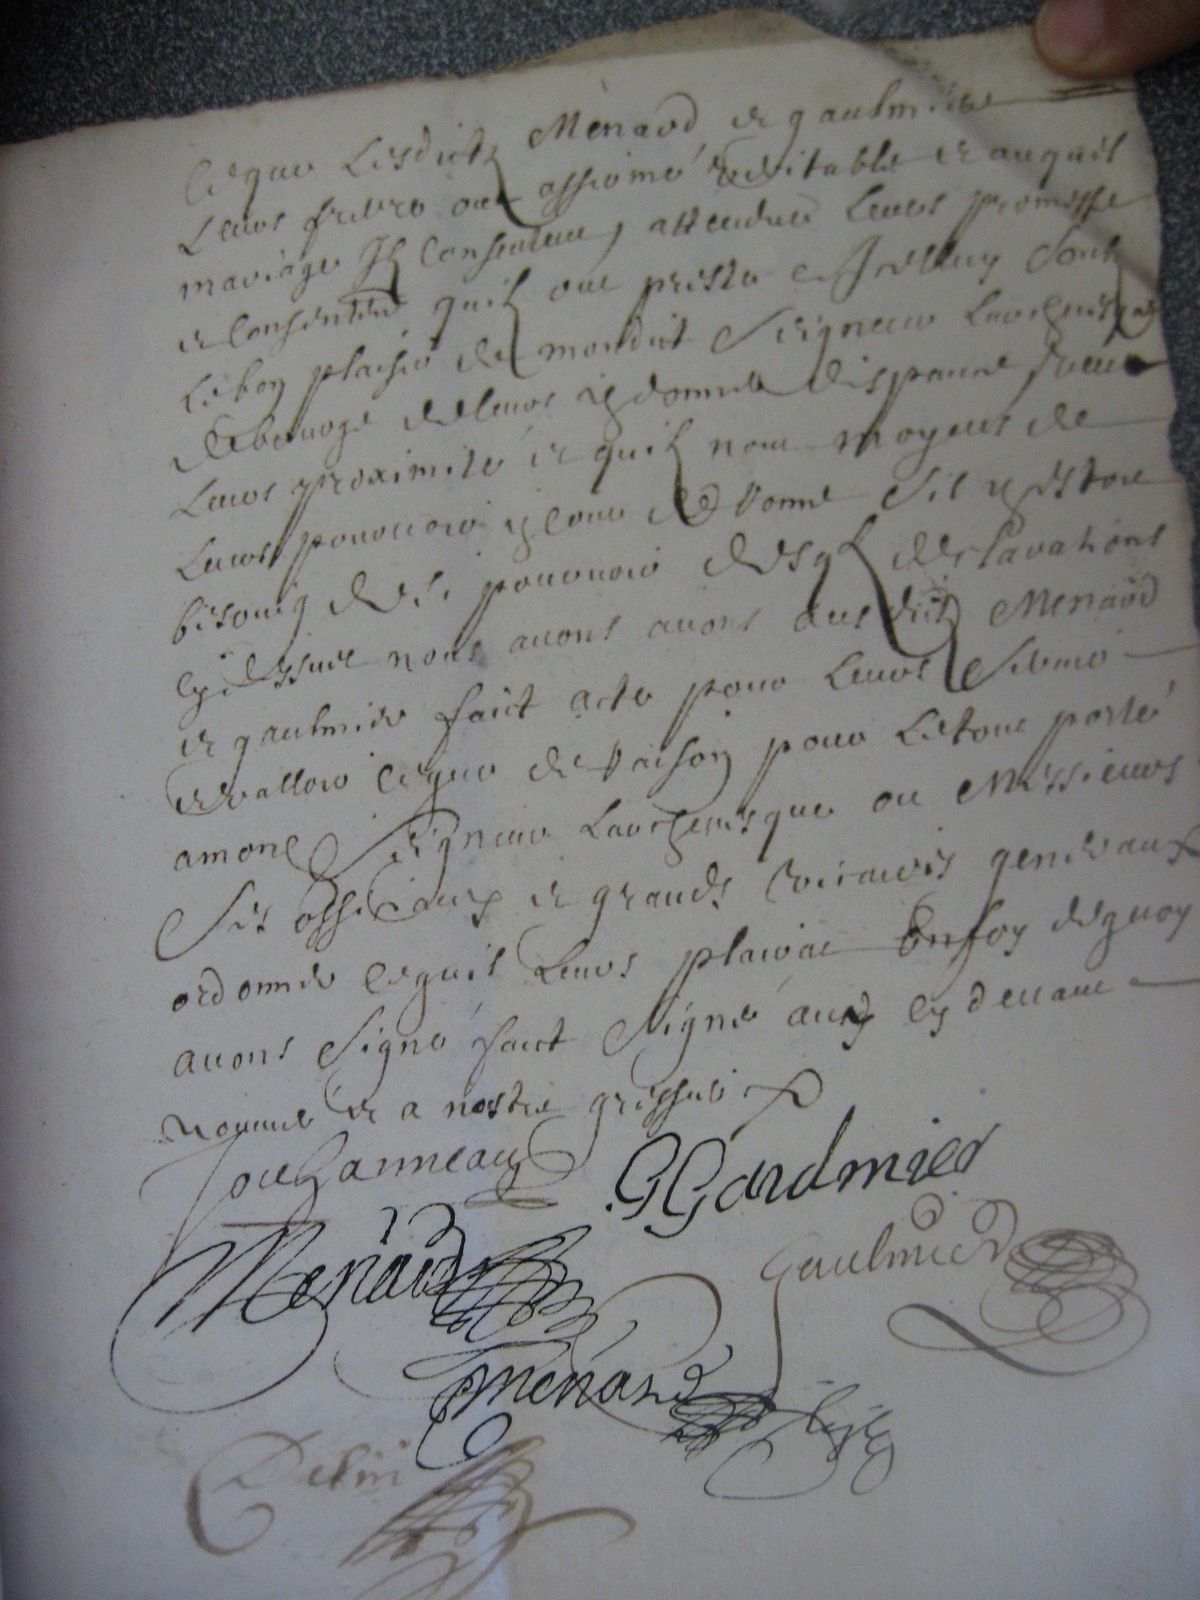 Ce que Lesdictz Menard et gaulmier
Leurs frere ont affirmé veritable et auquel
mariage Ilz Consentent, attendue Leurs promesse
et Consentend quilz ont preste et Icelluy soubz
Le bon plaisir de mondict Seigneur Larchevesque
de bourge de leurs y donner dispance pour
Leurs proximité et quilz nont moyens de
Leurs pourvoir y Cour de Romme Sil y estoit
besoing de si pourvoir desqlz declarations
Cy dessus nous avons avons ausdictz Menard
et gaulmier faict acte pour Leurs Servir
et valloir Ce que de raison pour Lestout porté
a mond Seigneur Larchevesque ou Messieurs
Ses officiaux et grands vicaires generaux
ordonner Ce quil Leurs plairat En foy de quoy
avons Signé faict Signé aux Cy devant
nommé et a nostre greffier
Jouhanneau
G Gardmier
Menard
Gaulmier
Menard
Delin